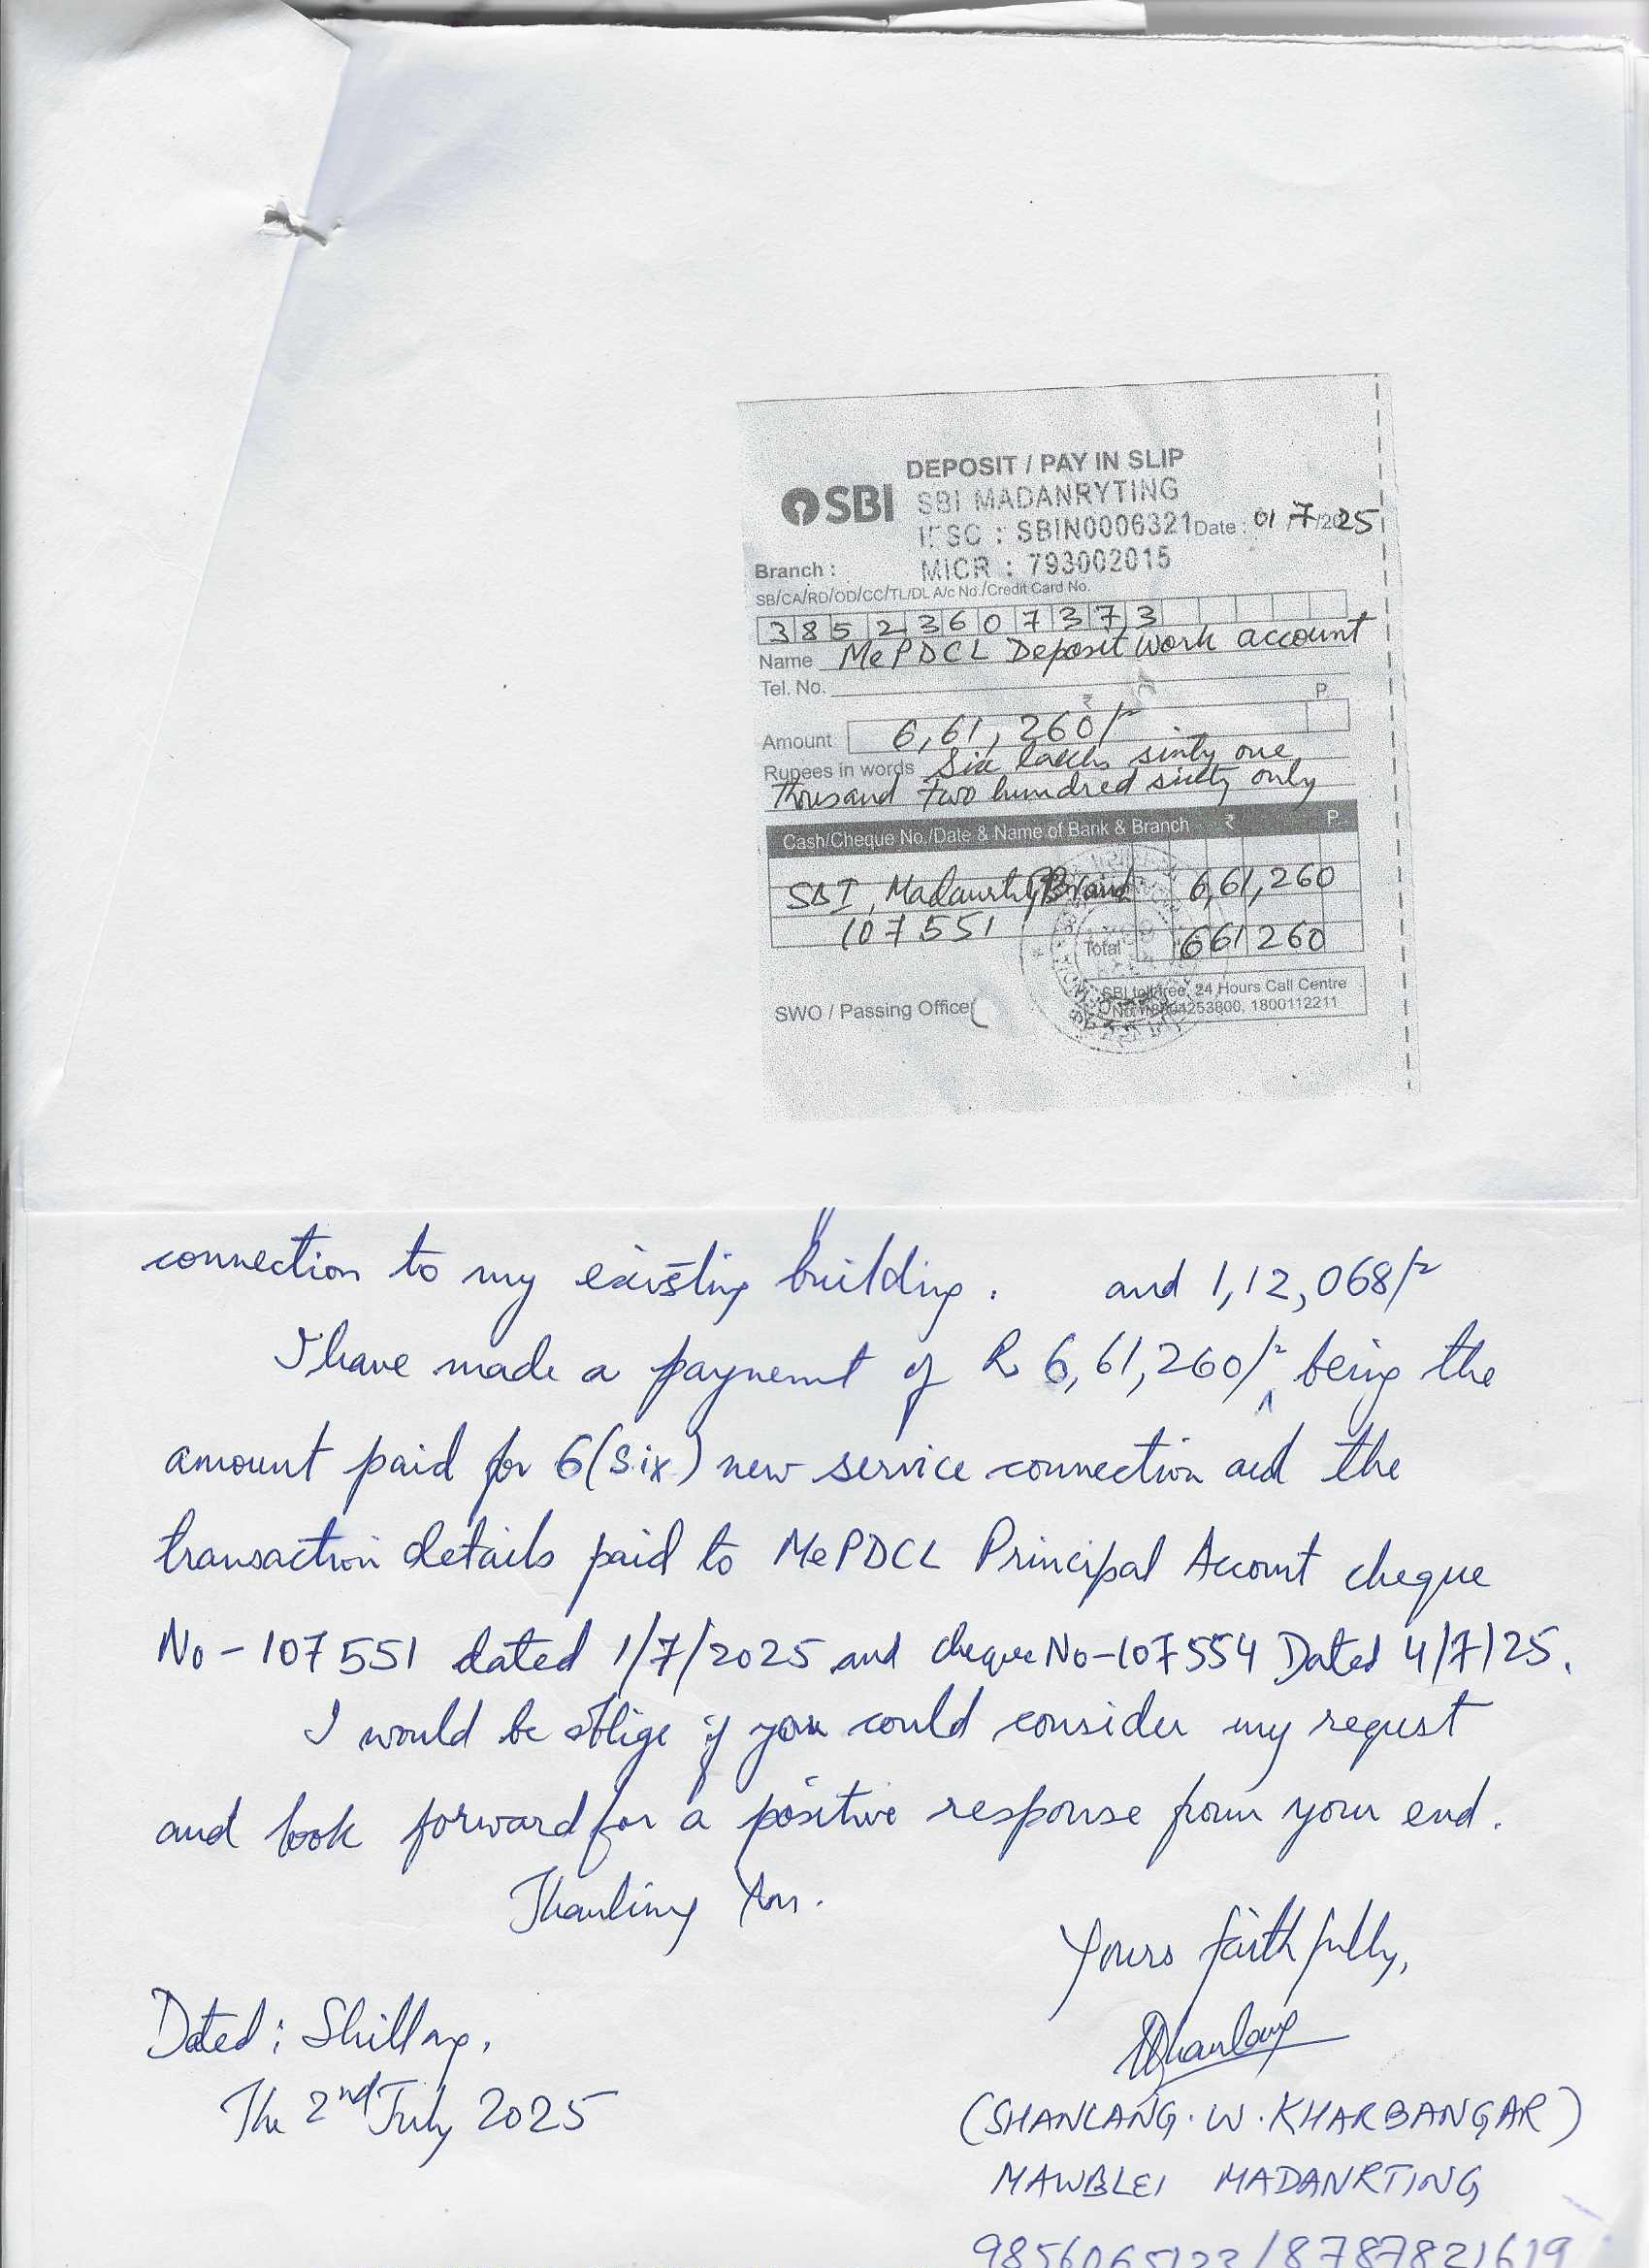 DEPOSIT / PAY IN SLIP
SBI SBI MADANRYTING
IFSC : SBIN0006321 Date : 01/7/2025
Branch : MICR : 793002015
SB/CA/RD/OD/CC/TL/DL A/c No./Credit Card No.
38523607373
Name MePDCL Deposit work account
Tel. No.
₹ P.
Amount 6,61,260/-
Rupees in words Six lakh sixty one
Thousand two hundred sixty only
Cash/Cheque No./Date & Name of Bank & Branch ₹ P.
SBI, 6,61,260
107551
Total 661260
SWO / Passing Officer
SBI tollfree, 24 Hours Call Centre
1800112211
connection to my existing building. and 1,12,068/-
I have made a paynemt of Rs 6,61,260/- being the
amount paid for 6(Six) new service connection and the
transaction details paid to MePDCL Principal Account cheque
No - 107551 dated 1/7/2025 and cheque No-107554 Dated 4/7/25.
I would be oblige if you could consider my requst
and look forward for a positive response from your end.
Thanking You.
Yours faithfully,
Dated : Shillong,
The 2nd July 2025
(SHANLANG. W. KHARBANGAR)
MAWBLEI MADANRTING
9856065123/8787821619